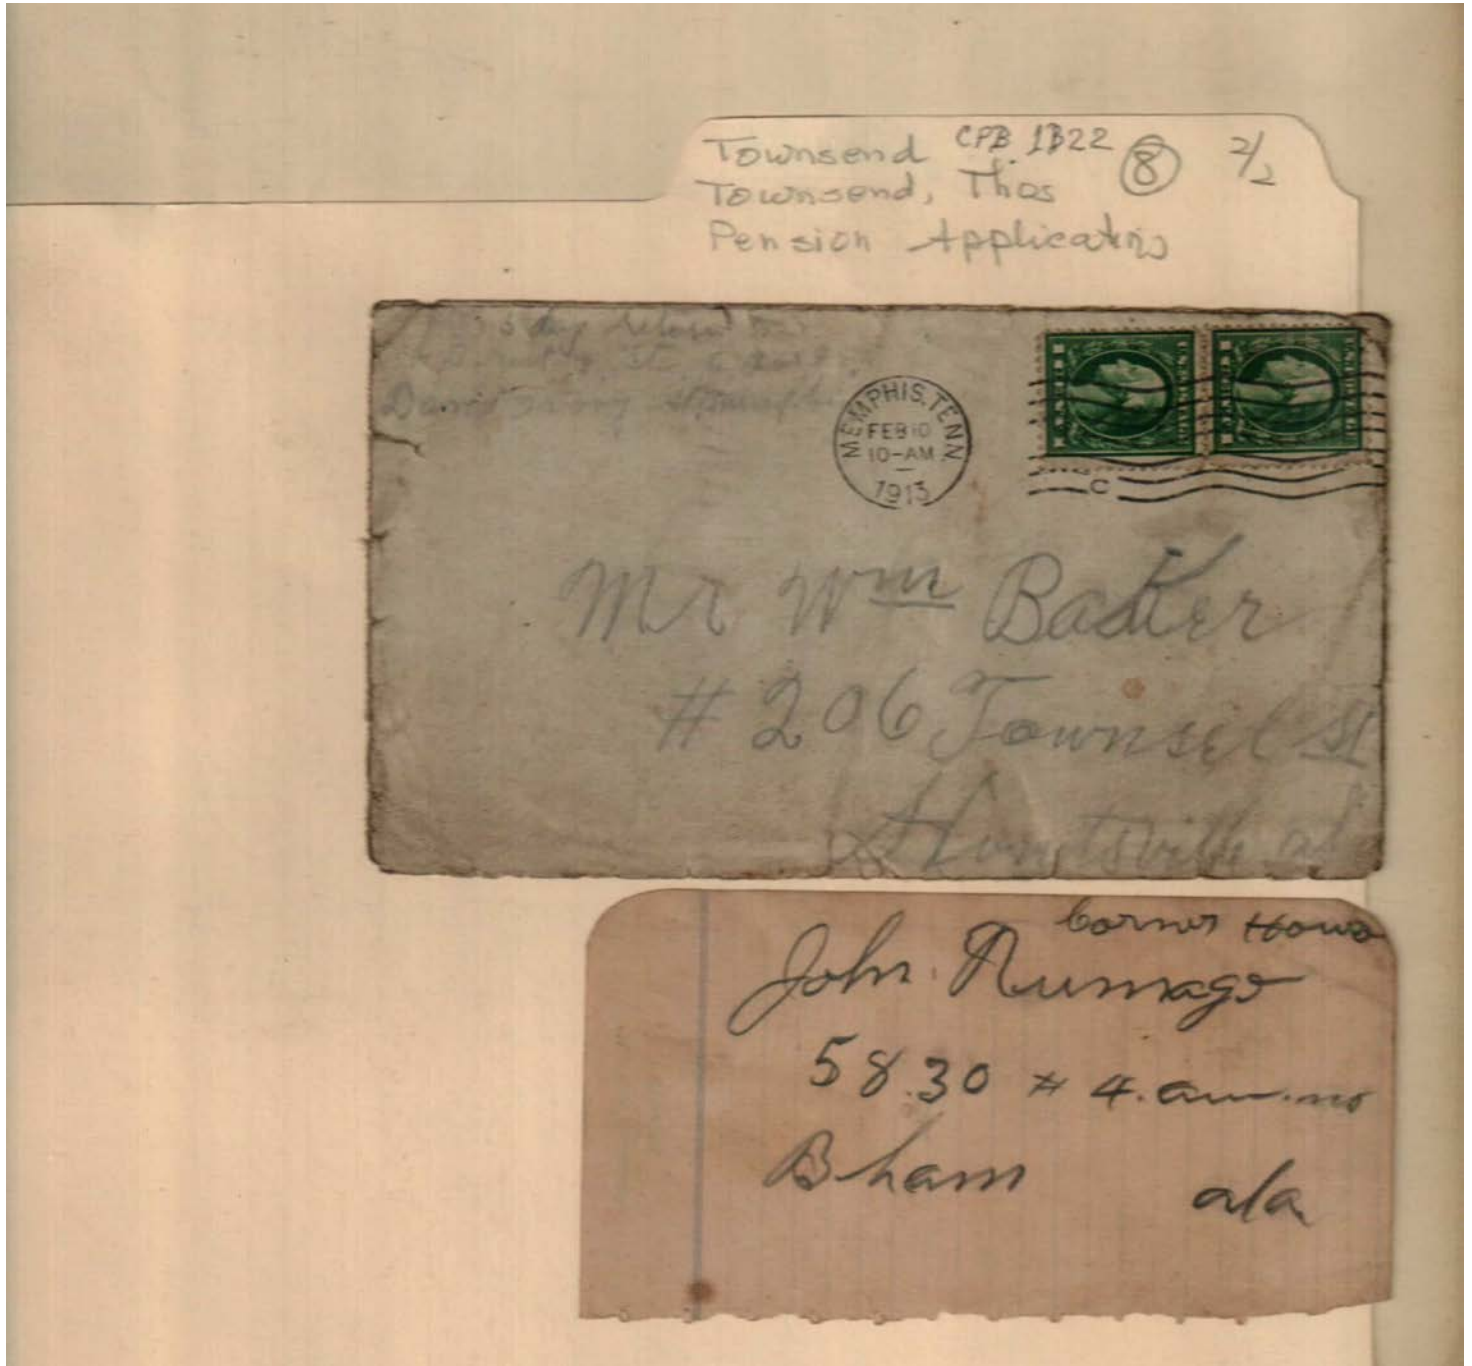 Townsend CPB 1B22 8 2/2
Townsend, Thos
Pension Applications
5 day
MEMPHIS, TENN
FEB 10
10-AM
1913
C
Mr Wm Baker
# 206 Townsel St
Huntsville al
Corner House
John Rumage
58.30 # 4. no
Bham ala